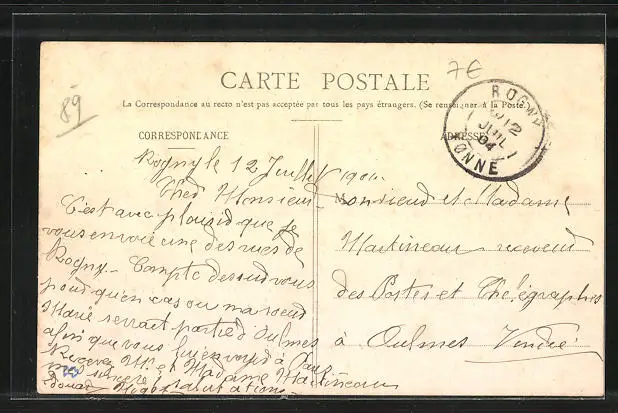 89
7€
CARTE POSTALE
La Correspondance au recto n'est pas acceptée par tous les pays étrangers. (Se renseigner à la Poste.)
ROGNY
12
JUIL
04
YONNE
CORRESPONDANCE
ADRESSE
Rogny le 12 Juillet 1904
Cher Monsieur
C'est avec plaisir que je
vous envoie une des vues de
Rogny. Compte dessus vous
pour qu'en cas ou ma soeur
Marie serrait partie d'Oulmes
afin que vous lui envoyé à
Recever Mr. et Madame Martineau
sincere salutations
Monsieur et Madame
Martineau receveur
des Postes et Télégraphes
à Oulmes Vendée